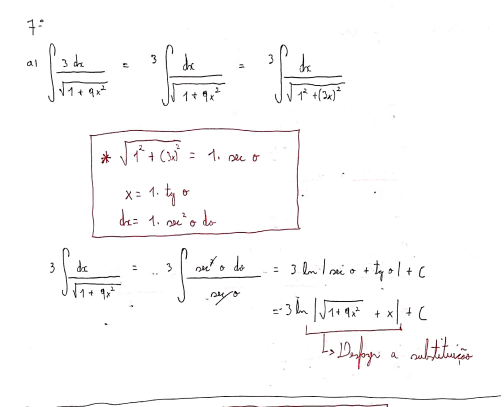 7º
a) ∫ 3 dx / √(1 + 9x²) = 3 ∫ dx / √(1 + 9x²) = 3 ∫ dx / √(1² + (3x)²)
* √(1² + (3x)²) = 1. sec θ
x = 1. tg θ
dx = 1. sec² θ dθ
3 ∫ dx / √(1 + 9x²) = .. 3 ∫ sec² θ dθ / sec θ = 3 ln |sec θ + tg θ| + C
= 3 ln |√(1 + 9x²) + x| + C
↳ Desfazer a substituição